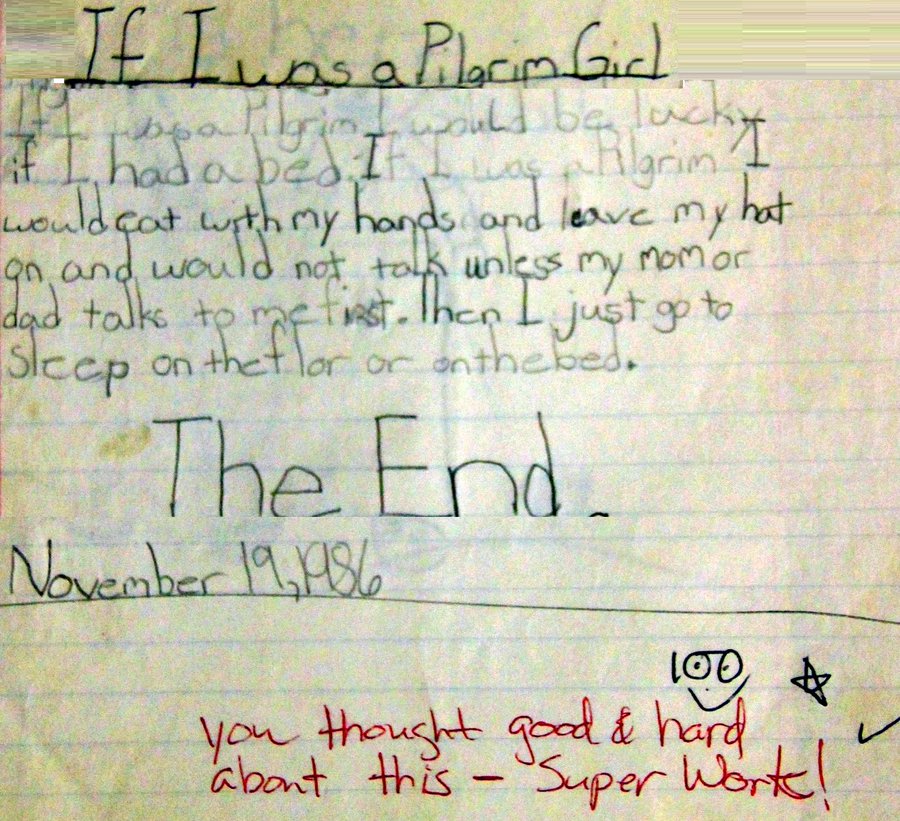 If I was a Pilgrim Girl
If I was a Pilgrim I would be lucky
if I had a bed. If I was a Pilgrim I
would eat with my hands and leave my hat
on, and would not talk unless my mom or
dad talks to me first. Then I just go to
sleep on the flor or on the bed.
The End.
November 19, 1986
100
you thought good & hard
about this – Super Work!